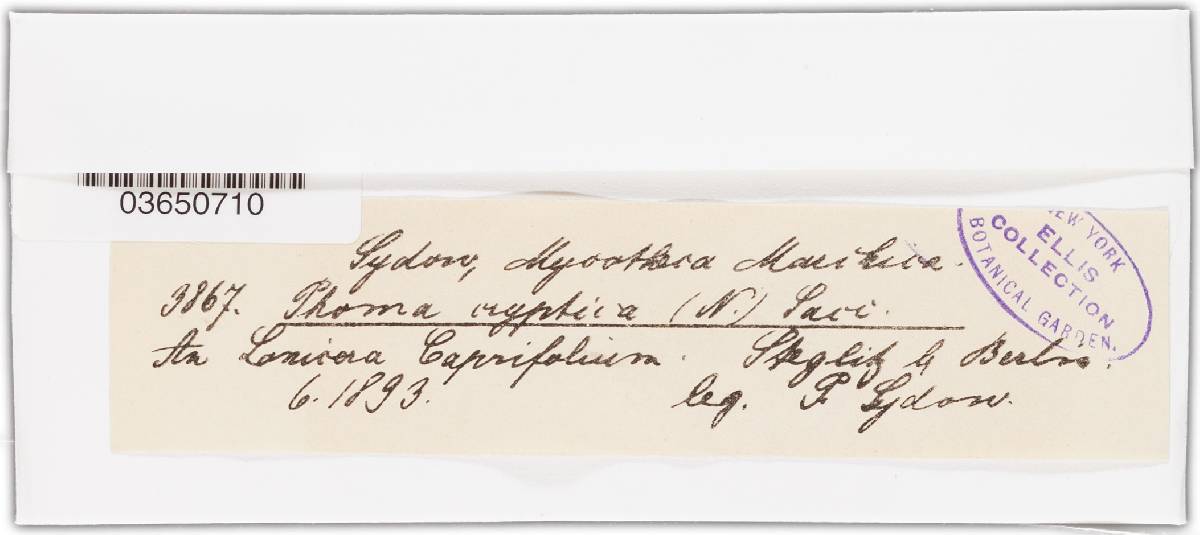 03650710
NEW YORK
ELLIS
COLLECTION
BOTANICAL GARDEN.
Sydow, Mycotheca Marchica.
3867. Phoma cryptica (N.) Sacc.
An Lonicera Caprifolium. Steglitz b Berlin.
6.1893. leg. P Sydow.